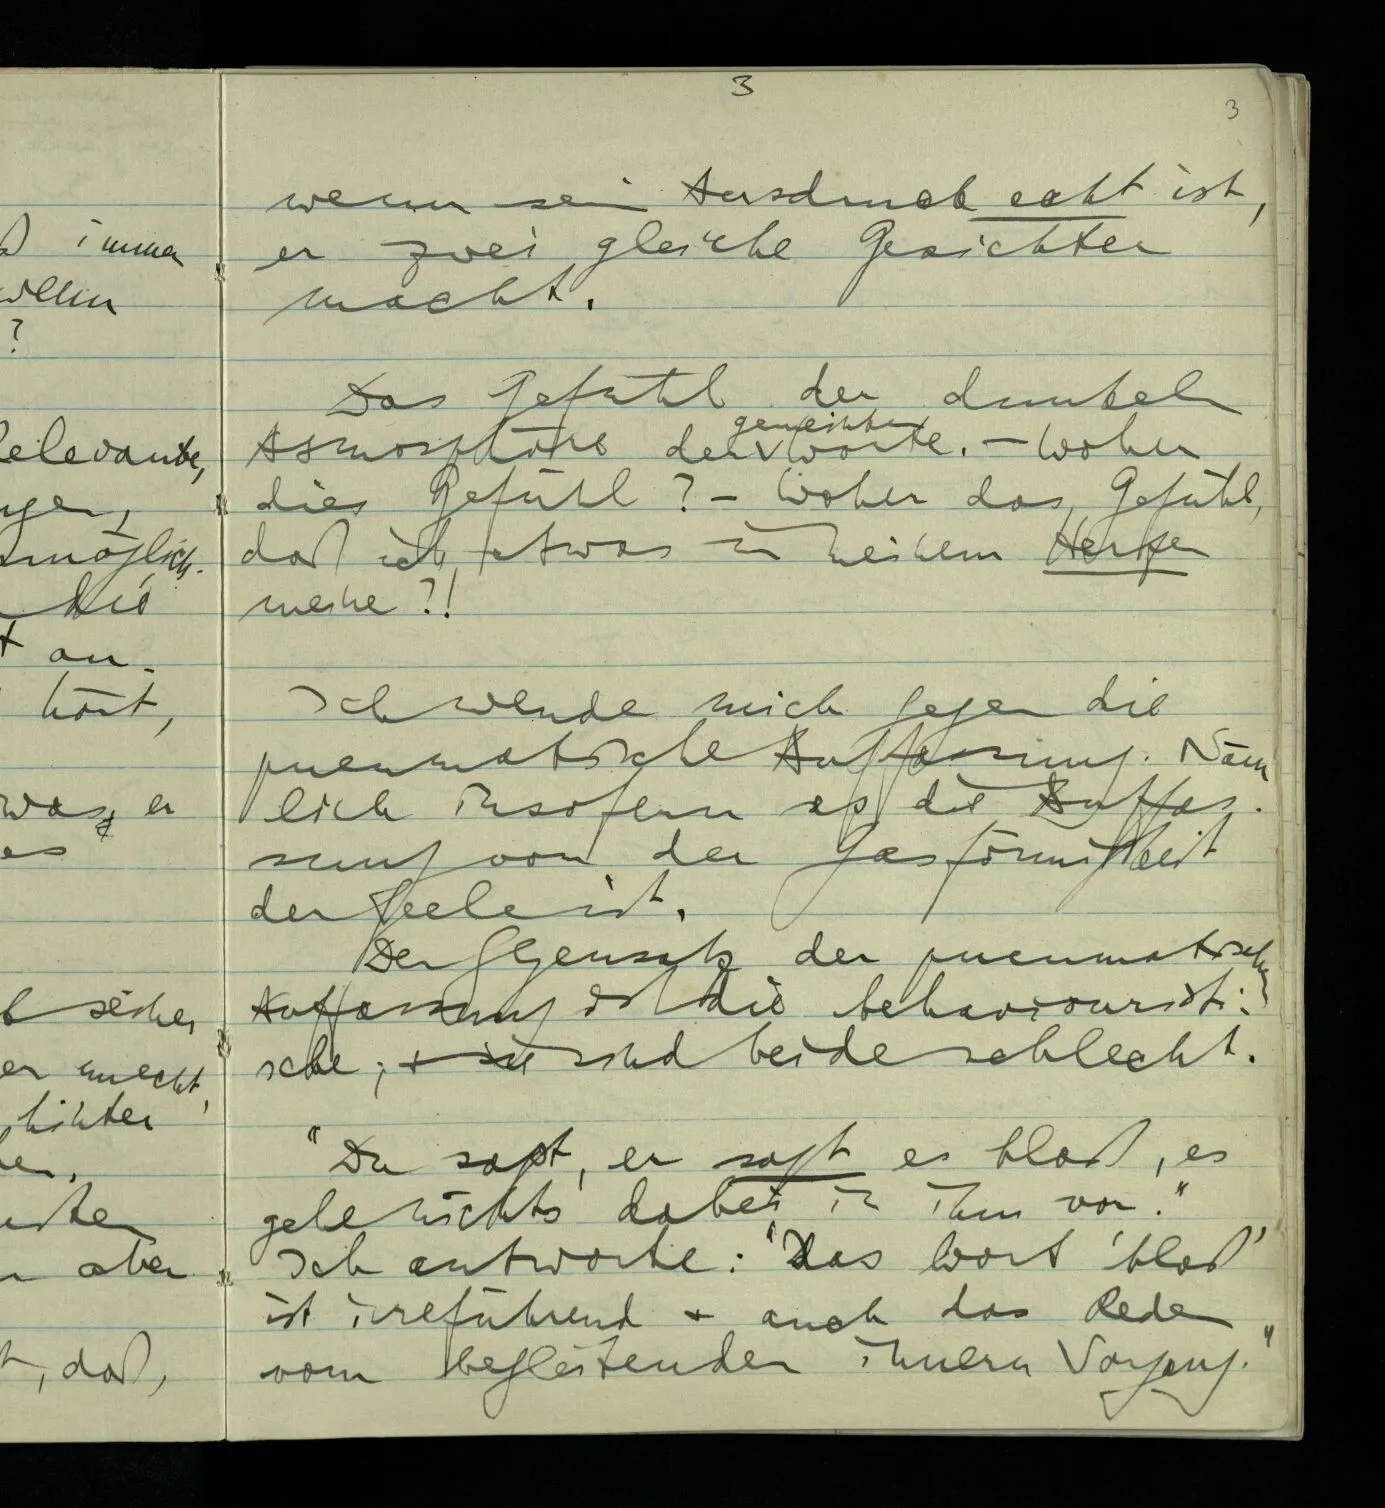 3
3
wenn sein Ausdruck echt ist,
er zwei gleiche Gesichter
macht.
Das Gefühl der dunkeln
gemeinten
Atmosphäre der Worte. – Woher
dies Gefühl? – Woher das Gefühl,
daß ich etwas in meinem Herzen
meine?!
Ich wende mich gegen die
pneumatische Auffassung. Näm
lich insofern es die Auffas-
sung von der Gasförmigkeit
der Seele ist.
Der Gegensatz der pneumatischen
Auffassung ist die behaviouristi-
sche; + sie sind beide schlecht.
"Du sagst, er sagt es bloß, es
gehe nichts dabei in ihm vor."
Ich antworte: "Das Wort 'bloß'
ist irreführend + auch das Reden
vom begleitenden innern Vorgang."
immer
?
Relevante,
möglich-
die
an-
hört,
er
es
sicher
er macht,
hinter
aber
, daß,